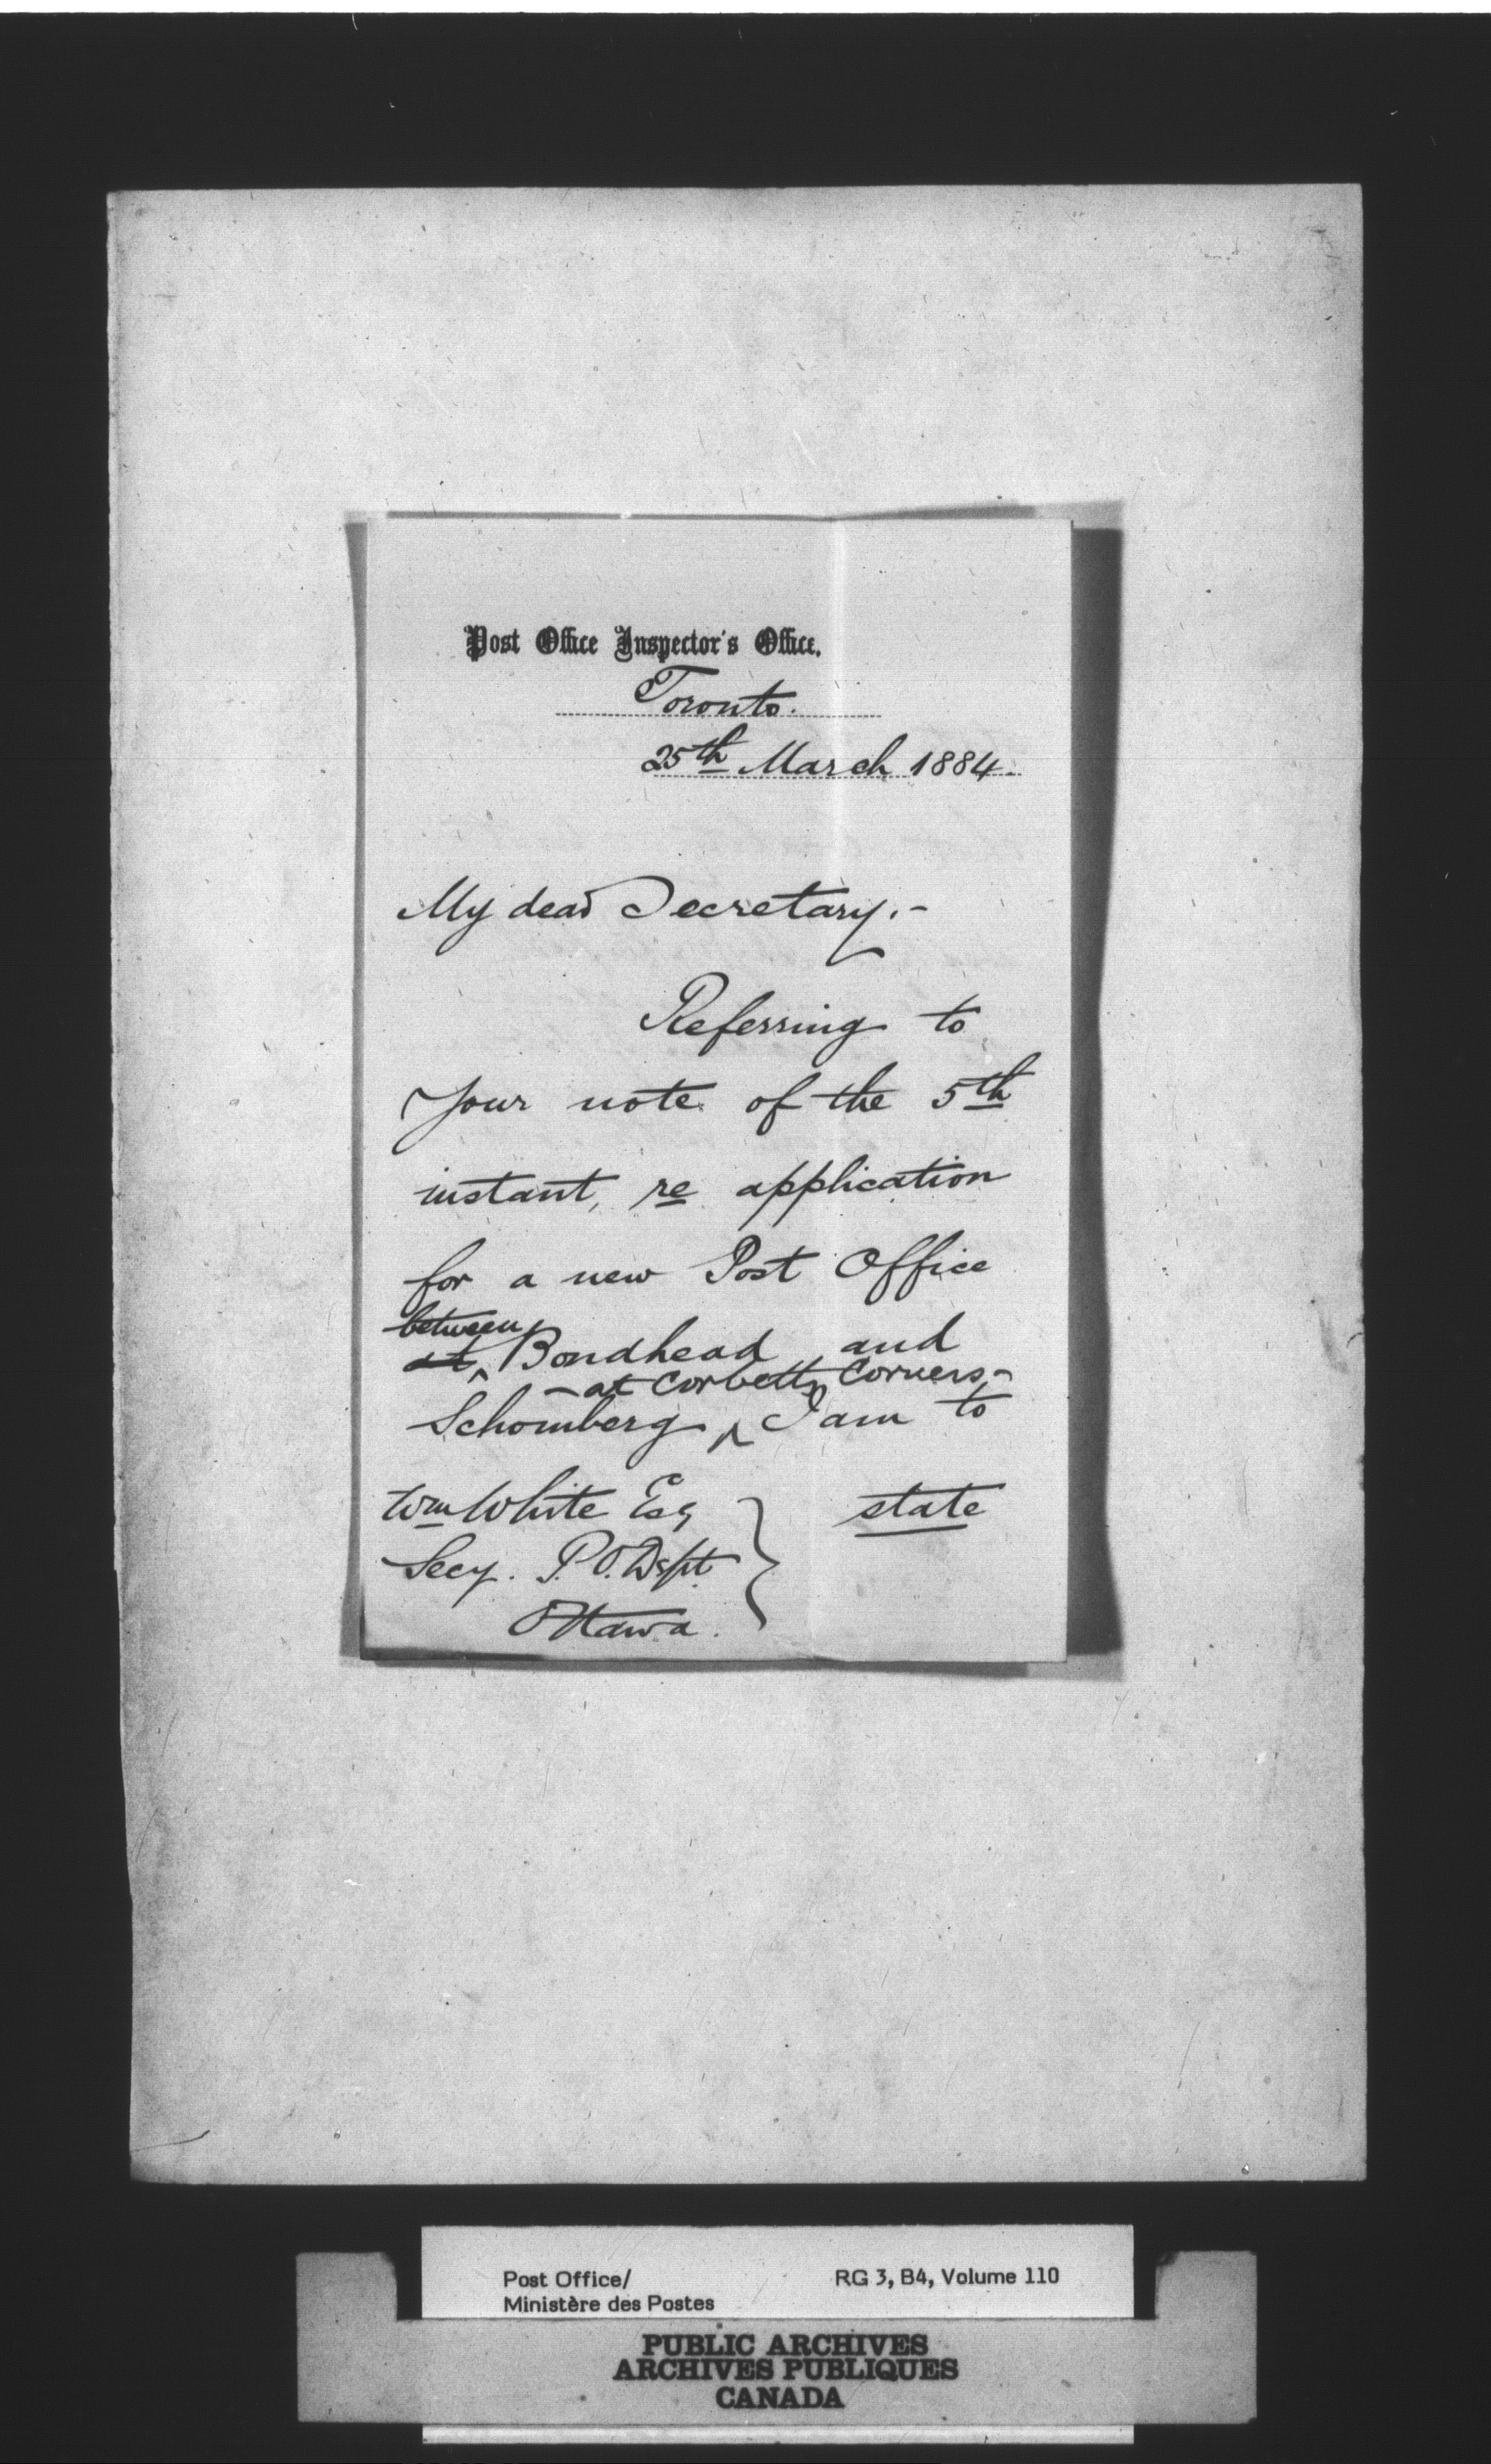 Post Office Inspector's Office.
Toronto.
25th March 1884.
My dear Secretary.-
Referring to
your note of the 5th
instant, re application
for a new Post Office
between
at ^ Bondhead and
- at Corbetts Corners -
Schomberg ^ I am to
state
Wm White Esq
Secy. P.O. Dept
Ottawa.
Post Office/
Ministère des Postes
RG 3, B4, Volume 110
PUBLIC ARCHIVES
ARCHIVES PUBLIQUES
CANADA